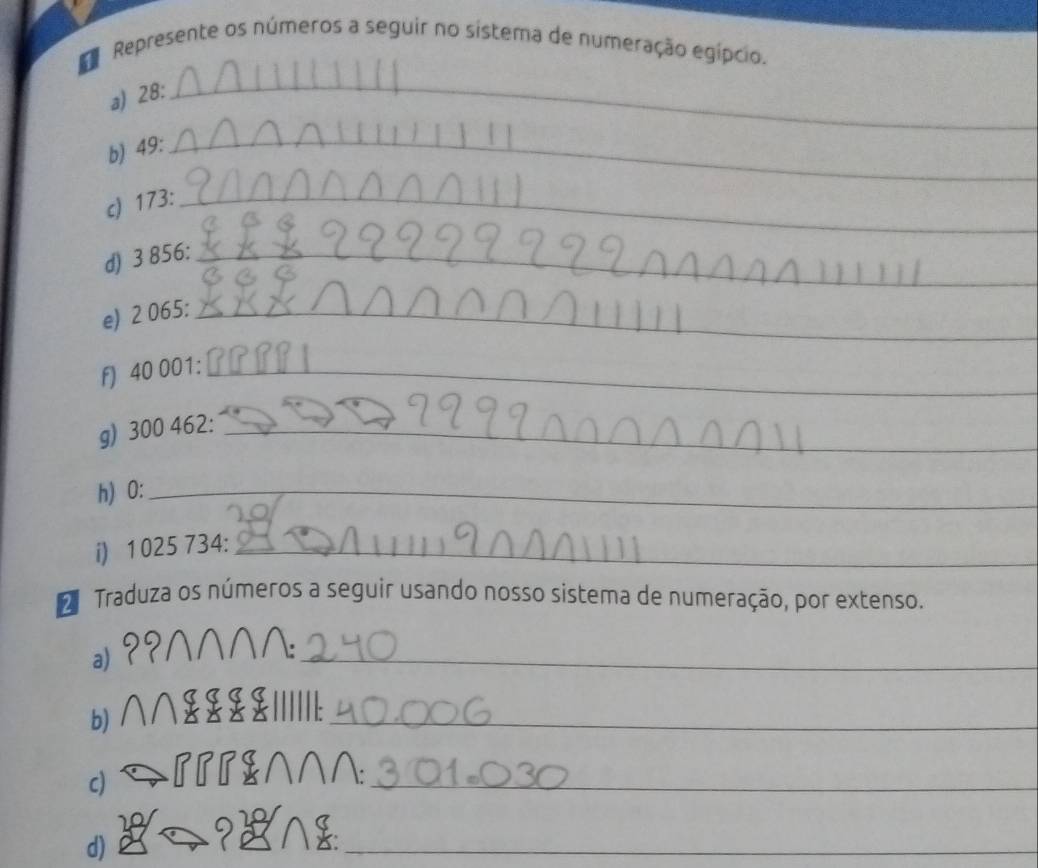 1 Represente os números a seguir no sistema de numeração egípcio.
a) 28:
b) 49:
c) 173:
d) 3 856:
e) 2 065:
f) 40 001:
g) 300 462:
h) 0:
i) 1 025 734:
2 Traduza os números a seguir usando nosso sistema de numeração, por extenso.
a) : 240
b) : 40.006
c) : 301.030
d) :